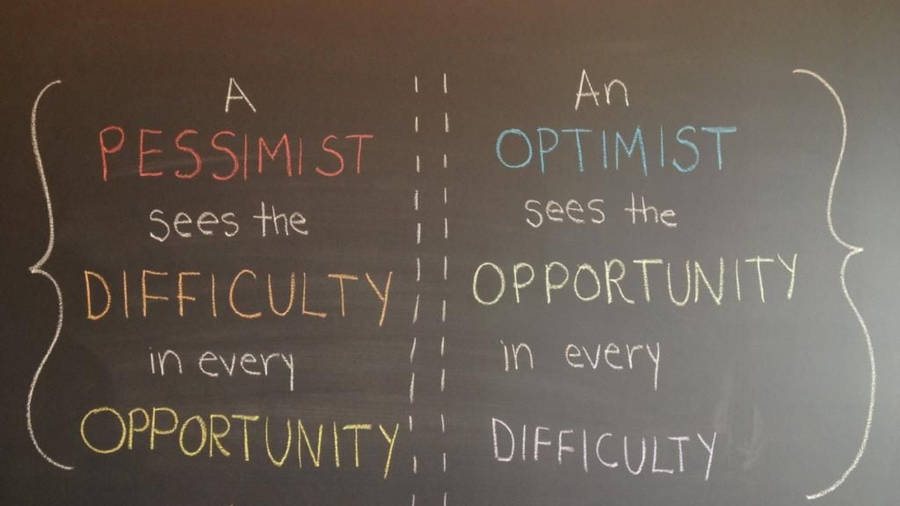 A
PESSIMIST
sees the
DIFFICULTY
in every
OPPORTUNITY
An
OPTIMIST
sees the
OPPORTUNITY
in every
DIFFICULTY